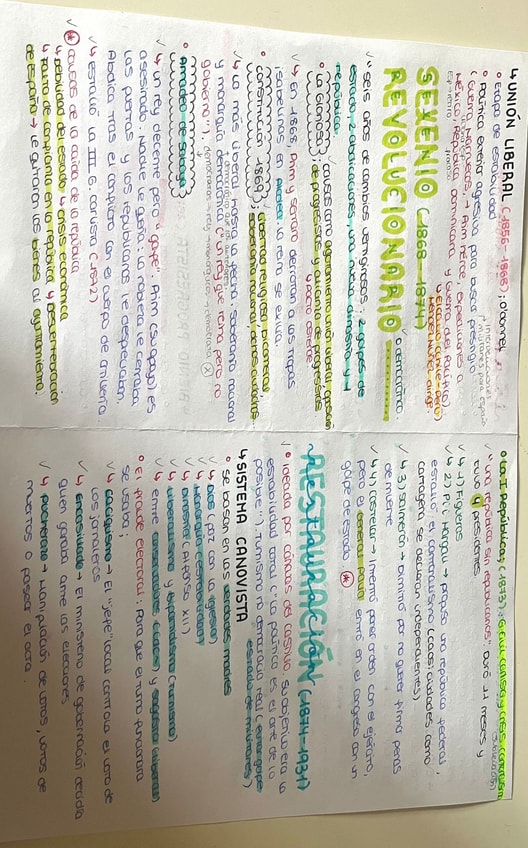 ↳ UNIÓN LIBERAL (1856-1868); O'Donnell
○ Etapa de estabilidad
○ Política exterior agresiva para buscar prestigio
(Guerra Marruecos, Prim héroe, expediciones a
México, República Dominicana y Guerra del Pacífico)
SEXENIO (1868-1874)
REVOLUCIONARIO o democrático
↳ "seis años de cambios vertiginosos; 2 golpes de
estado, 2 abdicaciones, una nueva dinastía y 1
república.
○ La Gloriosa; causas como agotamiento unión liberal, oposición
de progresistas y alianza de progresistas
↳ pacto ostende
↳ En 1868, Prim y Serrano derrotan a las tropas
isabelinas en Alcolea, la reina se exilia.
○ Constitución 1869; libertad religiosa, bicameral,
soberanía nacional, derechos
↳ La más liberal hasta la fecha. Soberanía nacional
y monarquía democrática ("un rey que reina pero no
gobierna").
○ Amadeo de Saboya
↳ Un rey decente pero "gafe". Prim (su apoyo) es
asesinado. Nadie le quería: la nobleza le cerraba
las puertas y los republicanos le despreciaban.
Abdica tras el conflicto con el cuerpo de artillería.
↳ estalló la III G. carlista (1872)
* causas de la caída de la república
↳ debilidad del estado ↳ crisis económica
↳ falta de confianza en la república ↳ desamortización
de España → le quitaron los bienes al ayuntamiento.
○ La I República; (1873);
"una república sin republicanos". Duró 11 meses y
tuvo 4 presidentes
↳ 1) Figueras
↳ 2) Pi i Margall → propuso una república federal,
estalló el cantonalismo (caos; ciudades como
Cartagena se declaran independientes)
↳ 3) Salmerón → dimitió por no querer firmar penas
de muerte
↳ 4) Castelar → intentó poner orden con el ejército,
pero el General Pavía entró en el congreso con un
golpe de estado *
RESTAURACIÓN (1874-1931)
○ Ideada por Cánovas del Castillo, su objetivo era la
estabilidad total ("la política es el arte de lo
posible"). Turnismo no democracia real (evitar golpe
estado de militares)
↳ SISTEMA CANOVISTA
○ se basan en las verdades madres
↳ Dios (paz con la iglesia)
↳ Monarquía
↳ Dinastía (Alfonso XII)
↳ Liberalismo y bipartidismo (turnismo)
↳ entre conservadores (Cánovas) y Sagasta liberal
○ El fraude electoral: Para que el turno funcionara
se usaba;
✓ Caciquismo → El "jefe" local controla el voto de
los jornaleros
✓ Encasillado → El ministerio de gobernación decidía
quien ganaba antes las elecciones
✓ Pucherazo → Manipulación de votos, votos de
muertos o parecer el acta.